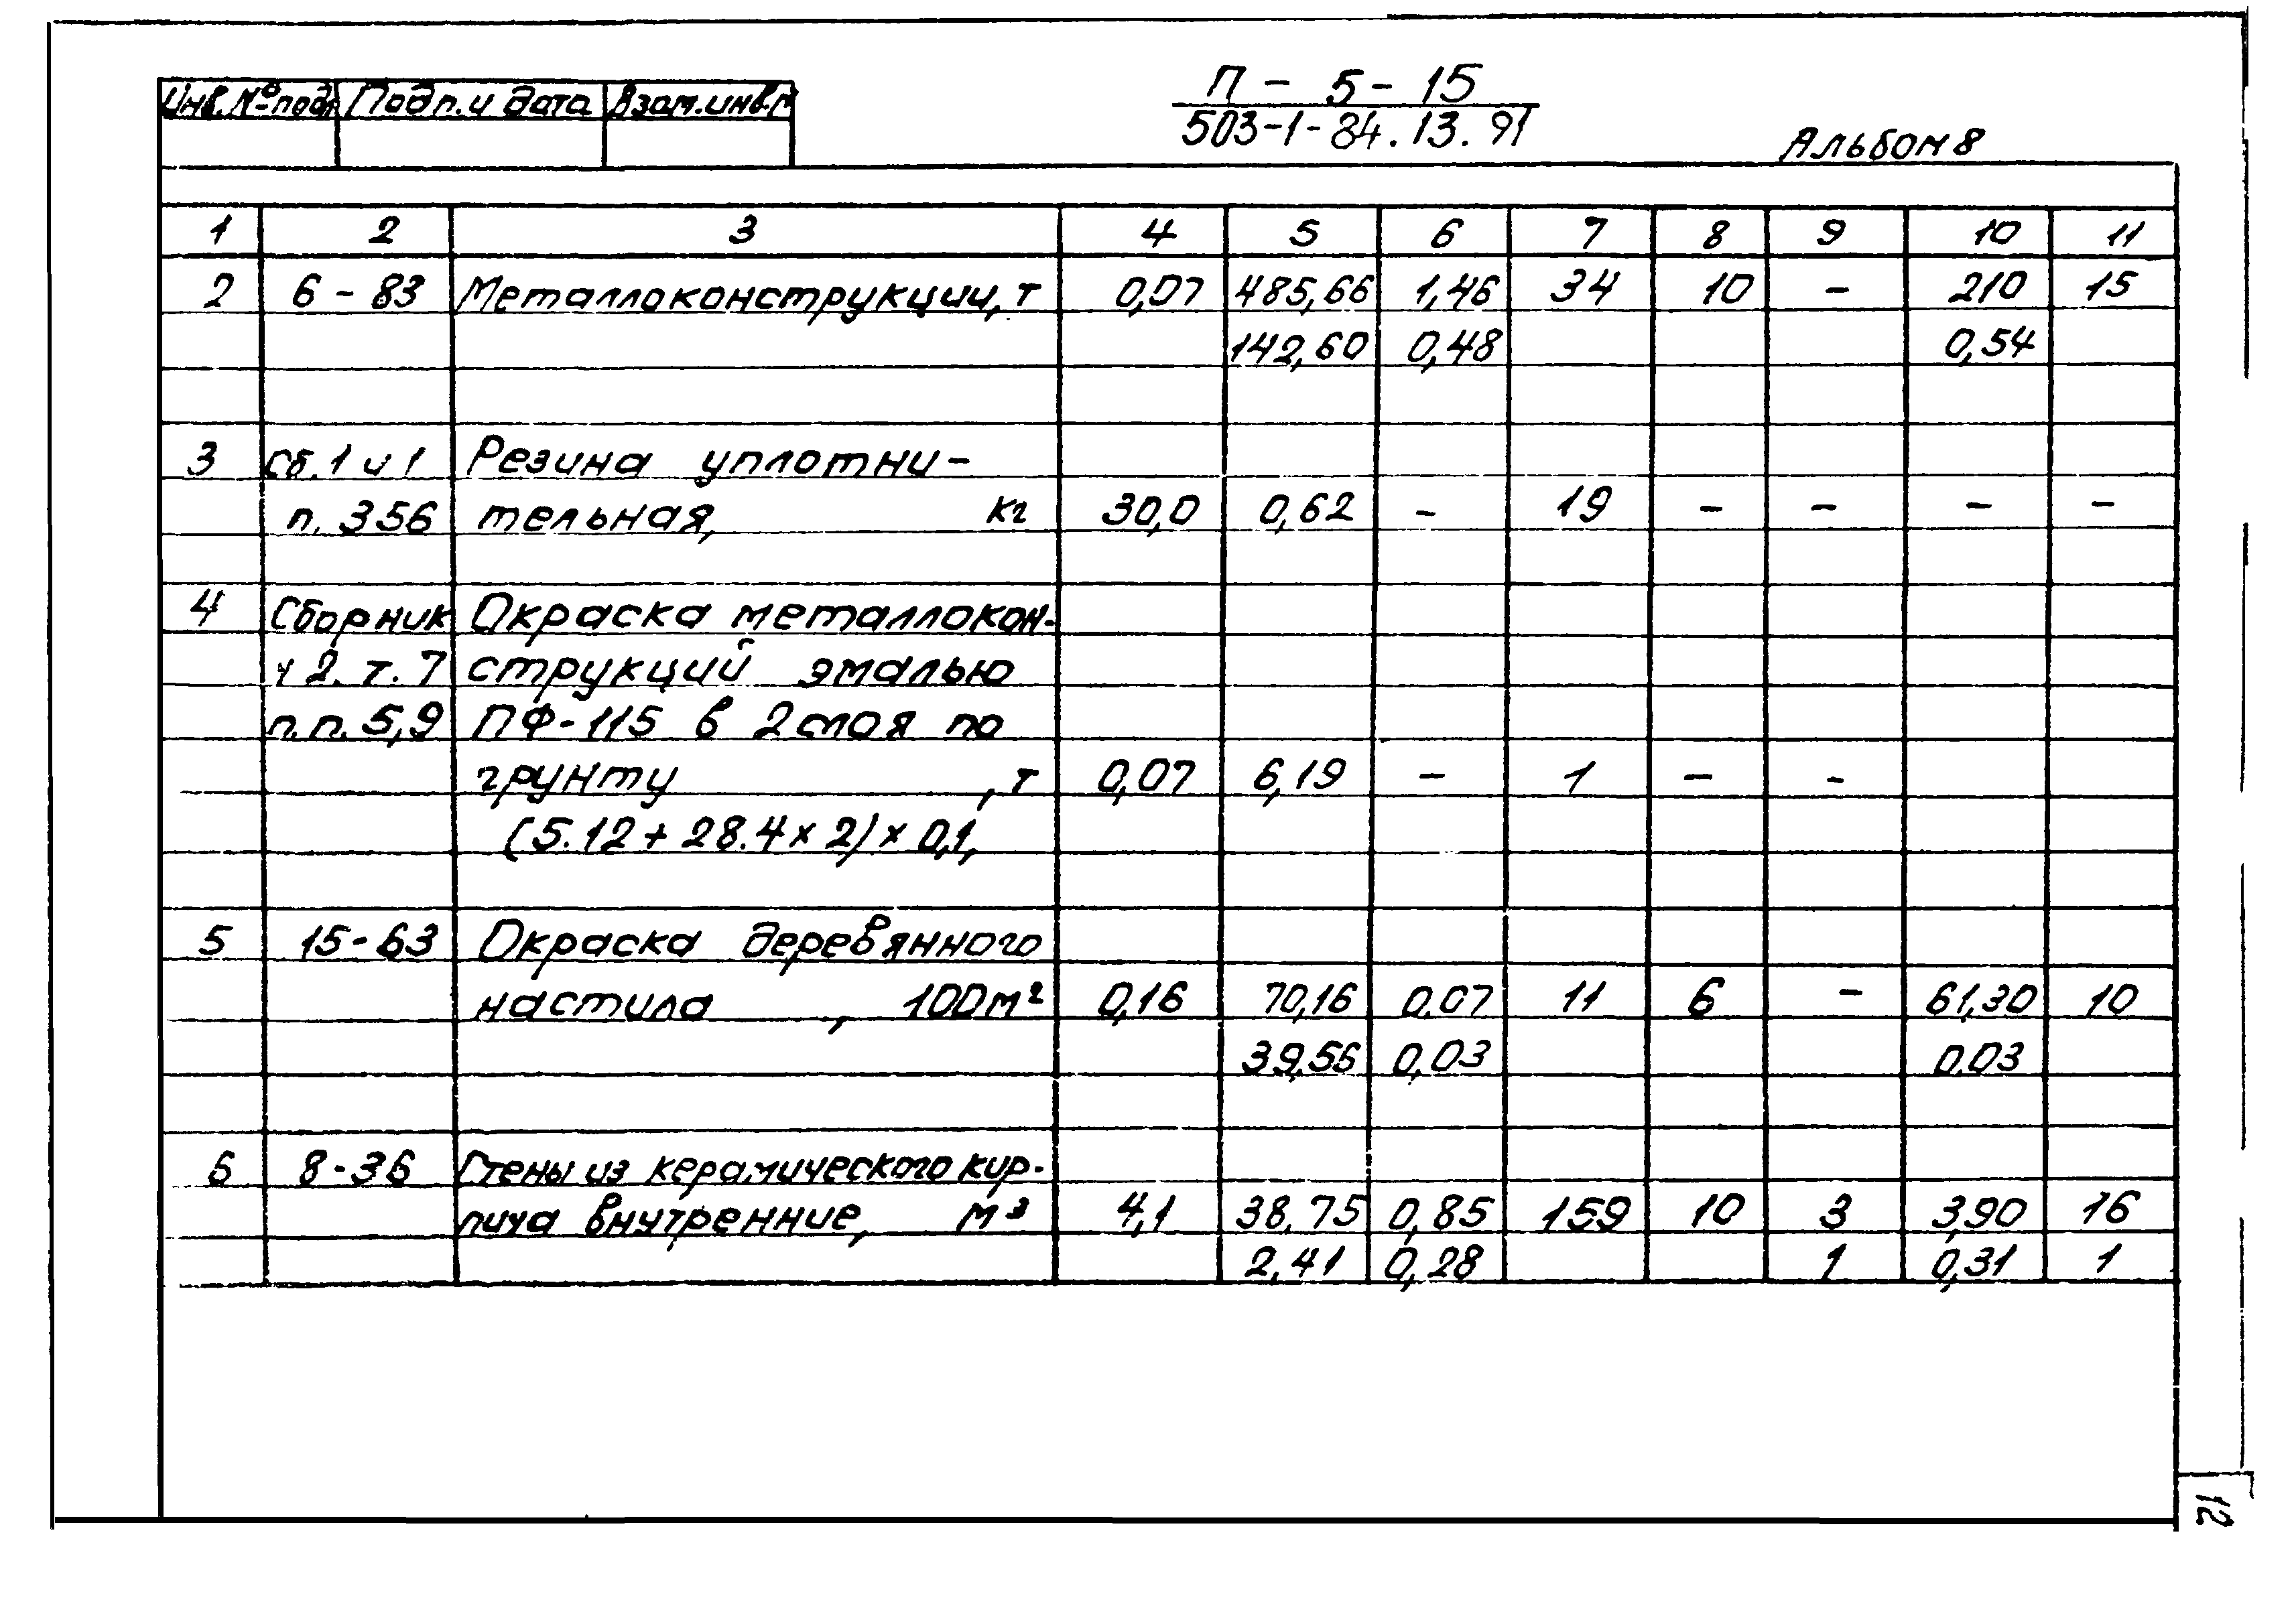 Инв. № подл Подп. и дата Взам. инв. №
П - 5 - 15
503-1-84.13.91
Альбом 8
1 2 3 4 5 6 7 8 9 10 11
2 6 - 83 Металлоконструкции, т 0,07 485,66 1,46 34 10 - 210 15
142,60 0,48 0,54
3 Сб. 1 ч 1 Резина уплотни-
п. 356 тельная, кг 30,0 0,62 - 19 - - - -
4 Сборник Окраска металлокон-
ч 2. т. 7 струкций эмалью
п.п. 5,9 ПФ-115 в 2 слоя по
грунту , т 0,07 6,19 - 1 - -
(5.12 + 28.4 х 2) х 0,1,
5 15-63 Окраска деревянного
настила , 100 м² 0,16 70,16 0,07 11 6 - 61,30 10
39,56 0,03 0,03
6 8-36 Стены из керамического кир-
пича внутренние, м³ 4,1 38,75 0,85 159 10 3 3,90 16
2,41 0,28 1 0,31 1
12